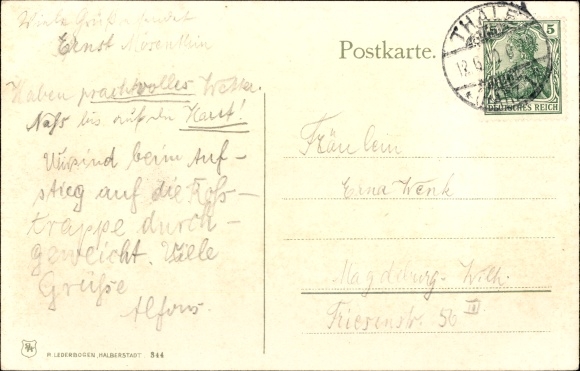 Viele Grüße sendet
Ernst
Haben prachtvolles Wetter.
Naß bis auf die Haut!
Wir sind beim Auf-
stieg auf die Roß-
trappe durch-
geweicht. Viele
Grüße
Alfons.
Postkarte.
THALE
5
DEUTSCHES REICH
Fräulein
Erna Wenk
Magdeburg-Wilh.
Friesenstr. 56 III
R. LEDERBOGEN, HALBERSTADT. 344